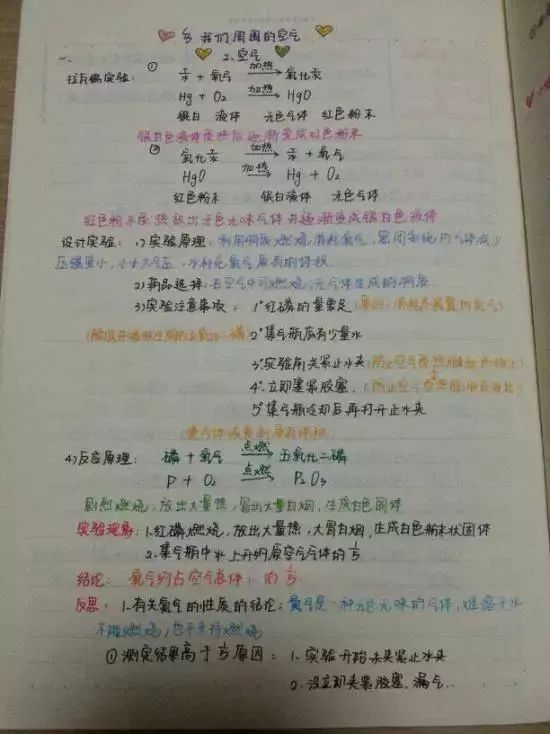 我们周围的空气
2.空气
一.
拉瓦锡实验: ① 汞 + 氧气 加热 氧化汞
Hg + O₂ 加热 HgO
银白 液体 无色气体 红色粉末
银白色液体受热后逐渐变成红色粉末
② 氧化汞 加热 汞 + 氧气
HgO 加热 Hg + O₂
红色粉末 银白液体 无色气体
红色粉末受热放出无色无味气体并逐渐变成银白色液体
设计实验: 1)实验原理: 利用物质燃烧消耗氧气,密闭系统内气体减少
压强变小,小于大气压,水补充氧气原有的体积
2)药品选择: 在空气中可燃烧,无气体生成的物质
3)实验注意事项: 1°红磷的量要足
2°集气瓶底有少量水
3°实验前夹紧止水夹
4°立即塞紧胶塞
5°集气瓶冷却后再打开止水夹
使气体恢复到原有体积
4)反应原理: 磷 + 氧气 点燃 五氧化二磷
P + O₂ 点燃 P₂O₅
剧烈燃烧,放出大量热,冒出大量白烟,生成白色固体
实验现象: 1.红磷燃烧,放出大量热,大冒白烟,生成白色粉末状固体
2.集气瓶中水上升约原空气气体的1/5
结论: 氧气约占空气总体积的1/5
反思: 1.有关氮气的性质的结论: 氮气是一种无色无味的气体,难溶于水
不能燃烧,也不支持燃烧
① 测定结果高于1/5原因: 1.实验开始未夹紧止水夹
2.没立即夹紧胶塞,漏气